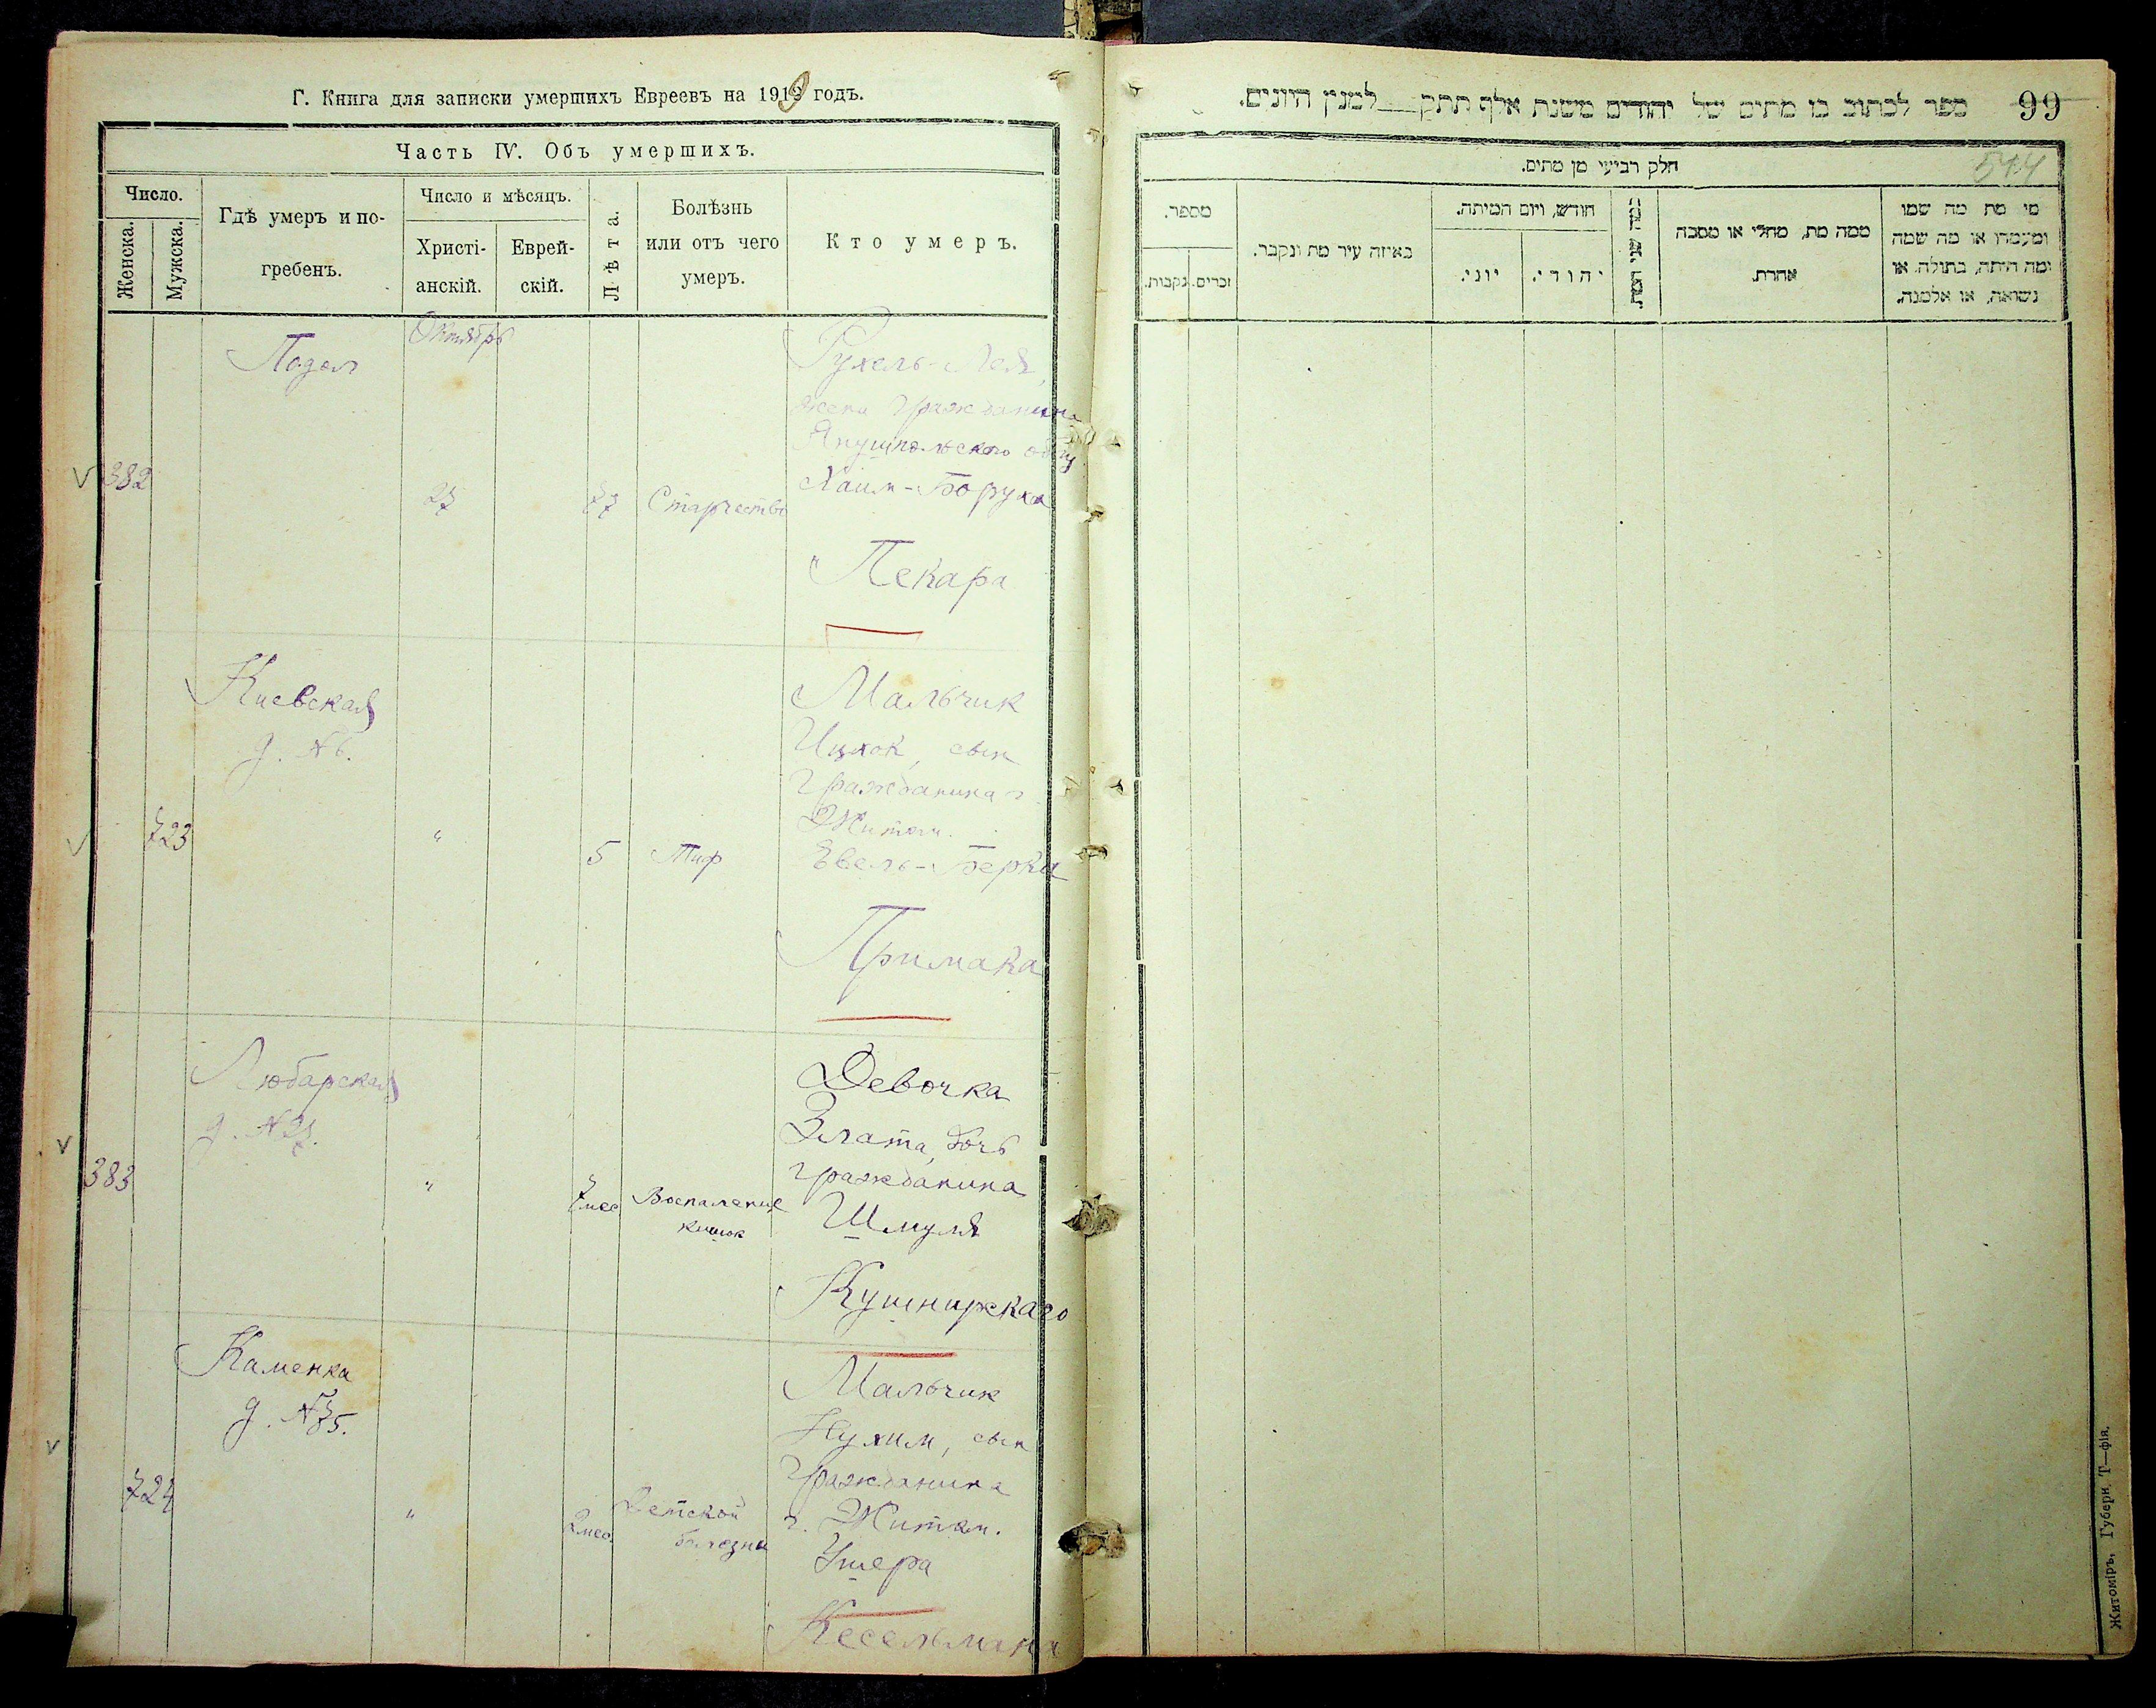 Г. Книга для записки умершихъ Евреевъ на 1919 годъ.
Часть IV. Объ умершихъ.
Число.
Женска.
Мужска.
Гдѣ умеръ и по-
гребенъ.
Число и мѣсяцъ.
Христі-
анскій.
Еврей-
скій.
Лѣта.
Болѣзнь
или отъ чего
умеръ.
Кто умеръ.
382
Подол
Октябрь
27
77
Старчество
Рухель-Лея,
жена гражданина
Янушпольского общ
Хаим-Боруха
Пекара
723
Киевская
д. №6.
"
5
Тиф
Мальчик
Ицхок, сын
гражданина г
Житом.
Эвель-Берка
Примака
383
Любарская
д. №27.
"
7 мес
Воспаление
кишок
Девочка
Злата, дочь
гражданина
Шмуля
Кушнирскаго
724
Каменка
д. №75.
"
2 мес.
Детской
болезни
Мальчик
Нухим, сын
гражданина
г. Житом.
Ушера
Кесельмана
99
ספר לכתוב בו מתים של יהודים משנת אלף תתק למנין היונים.
544
חלק רביעי מן מתים.
מספר.
זכרים.
נקבות.
באיזה עיר מת ונקבר.
חודש, ויום המיתה.
יוני.
יהודי.
כמה שני המת.
ממה מת, מחלי או מסבה
אחרת.
מי מת מה שמו
ומעמדו או מה שמה
ומה היתה, בתולה, או
נשואה, או אלמנה.
Житоміръ, Губерн. Т—фія.